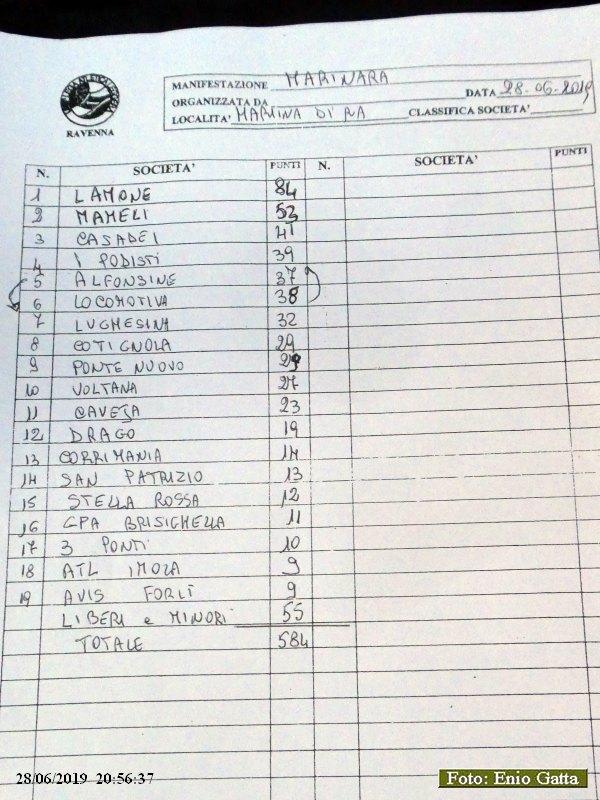 RAVENNA
MANIFESTAZIONE MARINARA
ORGANIZZATA DA DATA 28-06-2019
LOCALITA' MARINA DI RA CLASSIFICA SOCIETA'
N. SOCIETA' PUNTI N. SOCIETA' PUNTI
1 LAMONE 84
2 MAMELI 53
3 CASADEI 41
4 I PODISTI 39
5 ALFONSINE 37
6 LOCOMOTIVA 38
7 LUGHESINA 32
8 COTIGNOLA 29
9 PONTE NUOVO 29
10 VOLTANA 27
11 CAVEJA 23
12 DRAGO 19
13 CORRIMANIA 14
14 SAN PATRIZIO 13
15 STELLA ROSSA 12
16 GPA BRISIGHELLA 11
17 3 PONTI 10
18 ATL IMOLA 9
19 AVIS FORLÌ 9
LIBERI e MINORI 55
TOTALE 584
28/06/2019 20:56:37
Foto: Enio Gatta